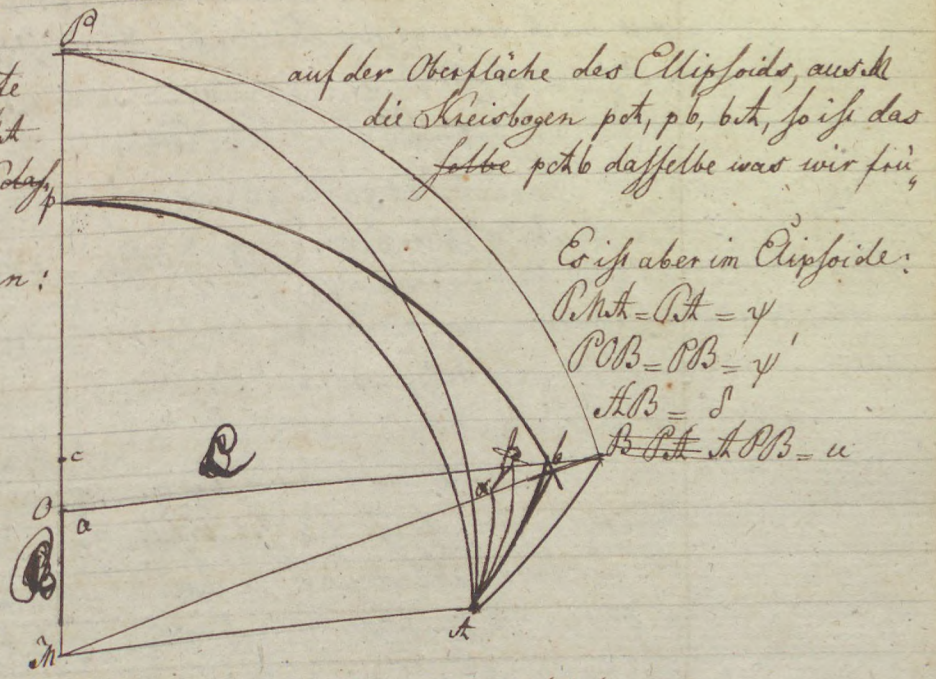 P
auf der Oberfläche des Ellipsoids, aus M
te
die Kreisbogen pA, pb, bA, so ist das
A
selbe pAb dasselbe was wir frü„
das p
Es ist aber im Elipsoide:
n:
PMA = PA = ψ
POB = PB = ψ'
AB = δ
B PA APB = u
c
B
β b
α
O
a
B
M
A